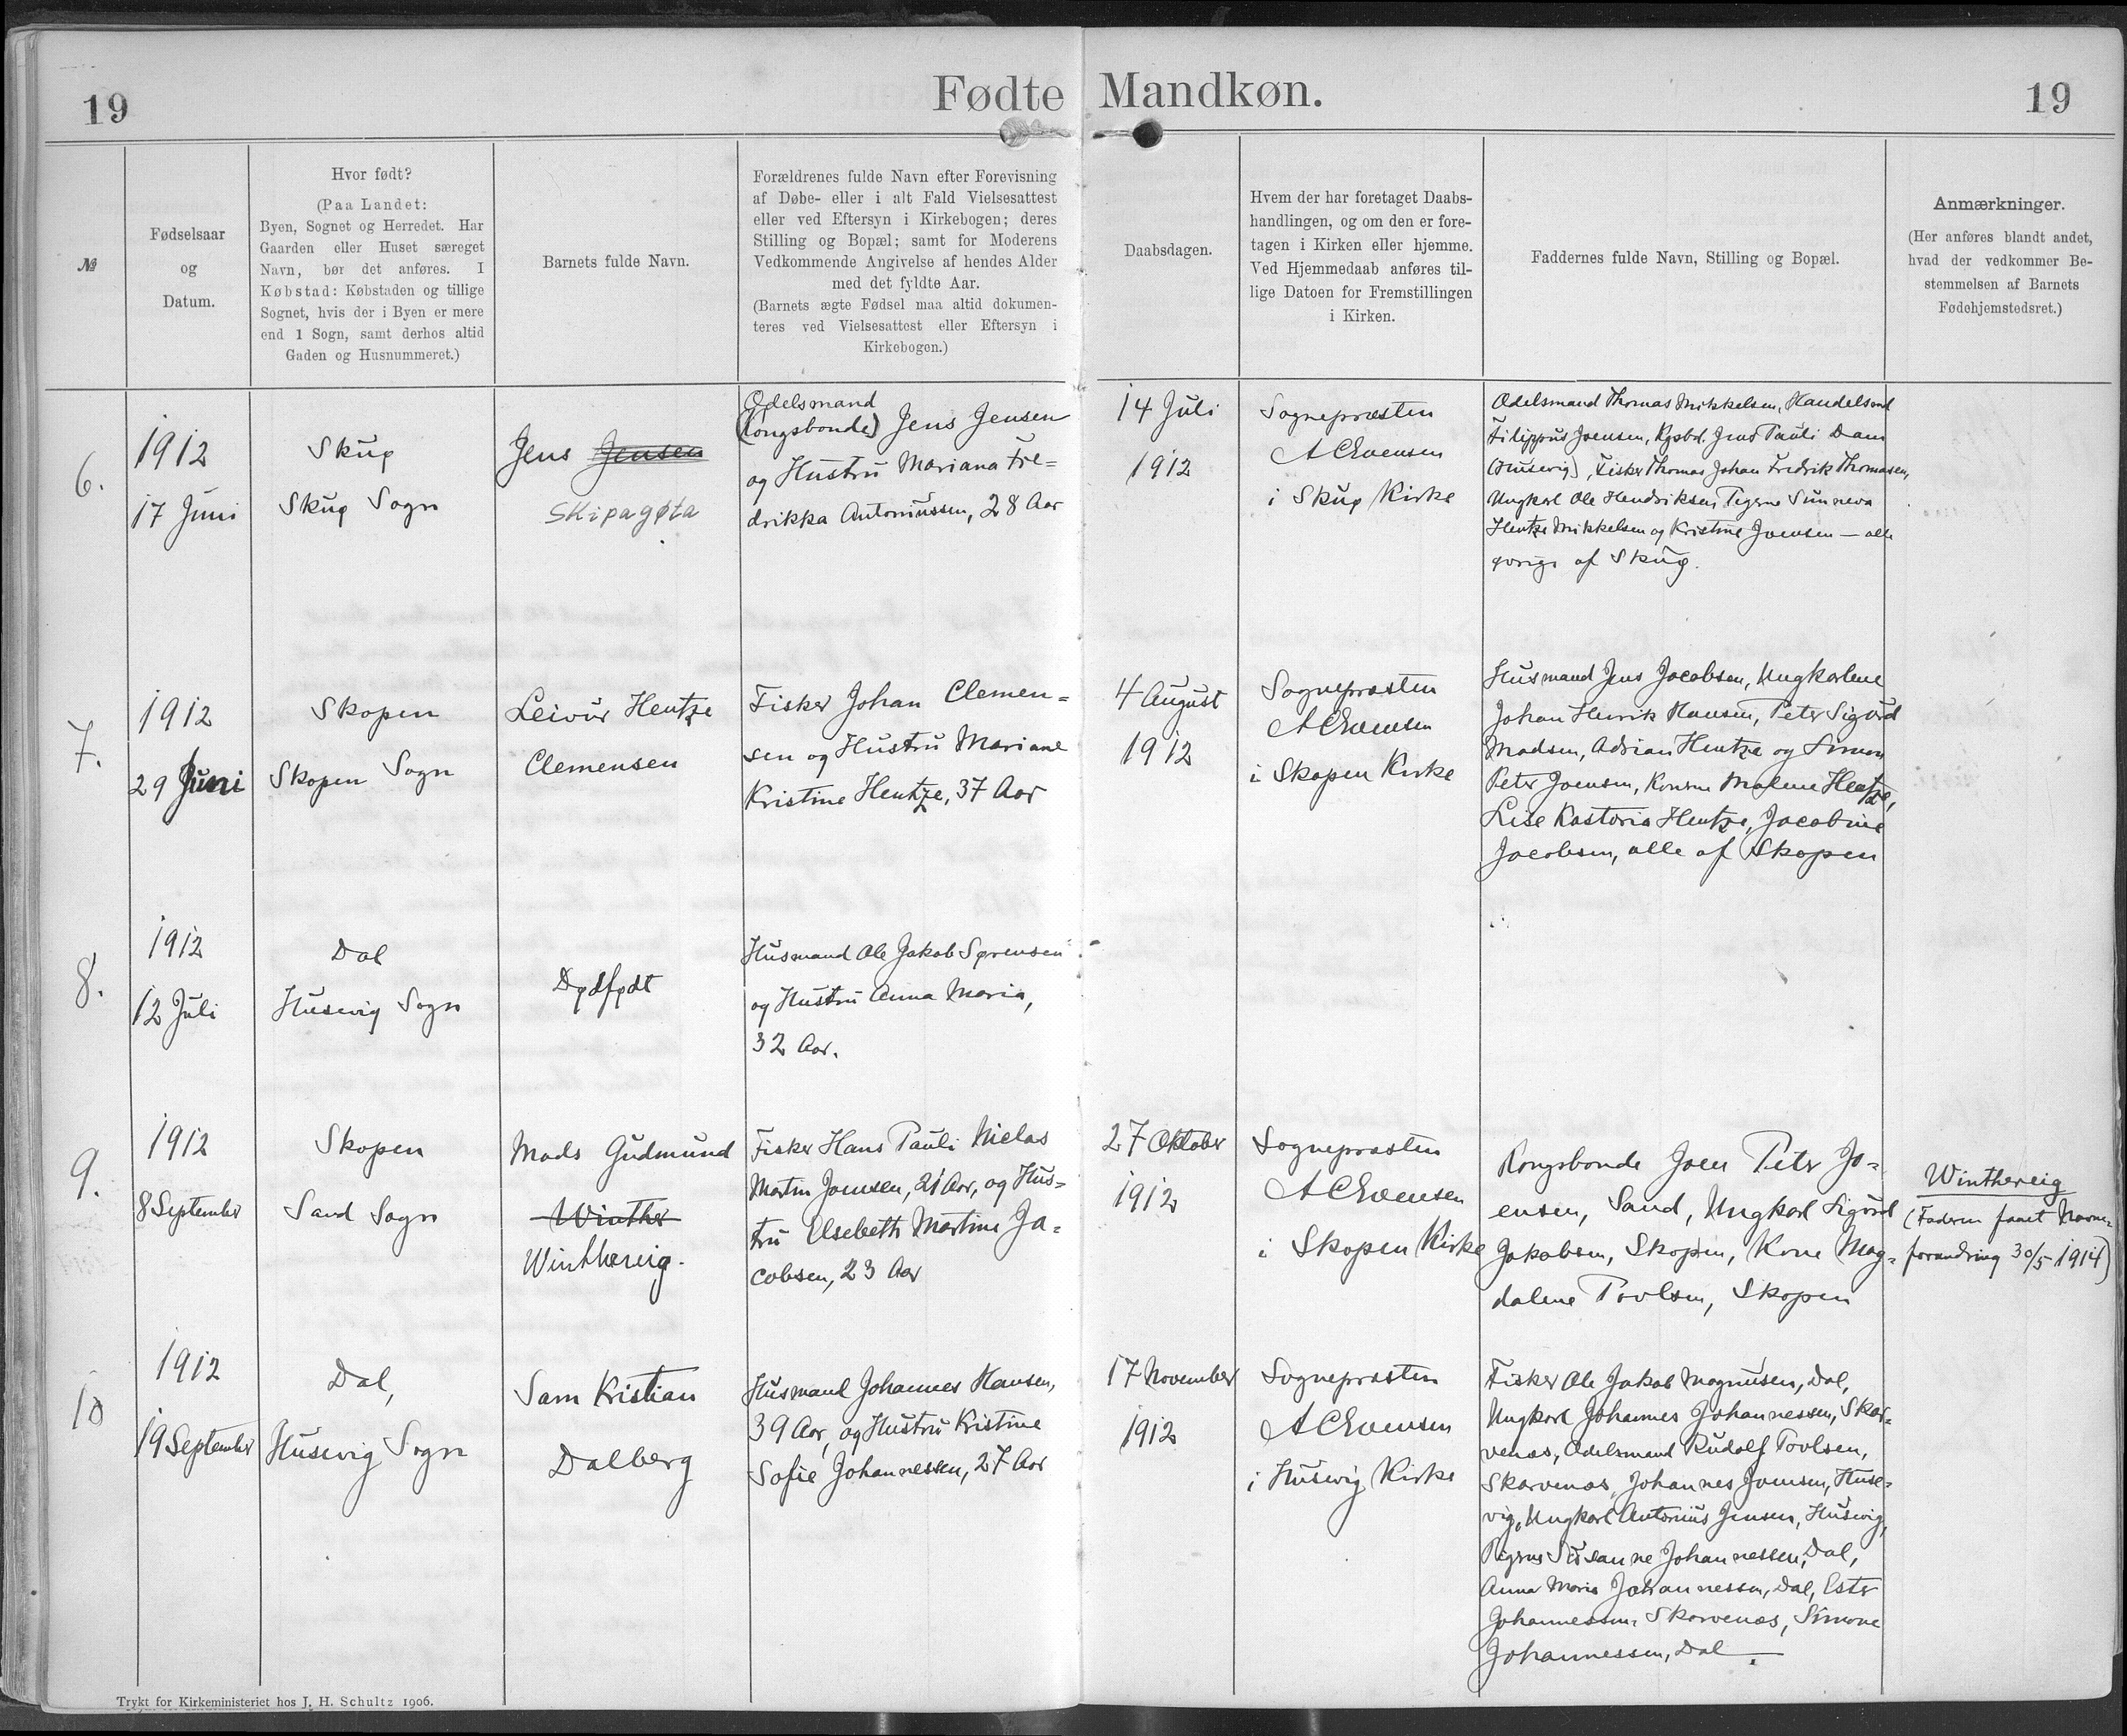 19
Fødte Mandkøn.
19
№
Fødselsaar
og
Datum.
Hvor født?
(Paa Landet:
Byen, Sognet og Herredet. Har
Gaarden eller Huset særeget
Navn, bør det anføres. I
Købstad: Købstaden og tillige
Sognet, hvis der i Byen er mere
end 1 Sogn, samt derhos altid
Gaden og Husnummeret.)
Barnets fulde Navn.
Forældrenes fulde Navn efter Forevisning
af Døbe- eller i alt Fald Vielsesattest
eller ved Eftersyn i Kirkebogen; deres
Stilling og Bopæl; samt for Moderens
Vedkommende Angivelse af hendes Alder
med det fyldte Aar.
(Barnets ægte Fødsel maa altid dokumen-
teres ved Vielsesattest eller Eftersyn i
Kirkebogen.)
Daabsdagen.
Hvem der har foretaget Daabs-
handlingen, og om den er fore-
tagen i Kirken eller hjemme.
Ved Hjemmedaab anføres til-
lige Datoen for Fremstillingen
i Kirken.
Faddernes fulde Navn, Stilling og Bopæl.
Anmærkninger.
(Her anføres blandt andet,
hvad der vedkommer Be-
stemmelsen af Barnets
Fødehjemstedsret.)
6.
1912
17 Juni
Skuø
Skuø Sogn
Jens Jensen
Skipagøta
Odelsmand
(Kongsbonde) Jens Jensen
og Hustru Mariana Fre=
drikka Antoniussen, 28 Aar
14 Juli
1912
Sognepræsten
A C Evensen
i Skuø Kirke
Odelsmand Thomas Mikkelsen, Handelsmd
Filippus Joensen, Kgsbd. Jens Pauli Dam
(Husevig), Fisker Thomas Johan Fredrik Thomasen,
Ungkarl Ole Hendriksen, Pigerne Sunneva
Hentze Mikkelsen og Kristine Joensen — alle
øvrige af Skuø.
7.
1912
29 Juni
Skopen
Skopen Sogn
Leivur Hentze
Clemensen
Fisker Johan Clemen=
sen og Hustru Mariane
Kristine Hentze, 37 Aar
4 August
1912
Sognepræsten
A C Evensen
i Skopen Kirke
Husmand Jens Jacobsen, Ungkarlene
Johan Henrik Hansen, Peter Sigurd
Madsen, Adrian Hentze og Simon
Peter Joensen, Konerne Malene Hentze,
Lise Kastoria Hentze, Jacobine
Jacobsen, alle af Skopen
8.
1912
12 Juli
Dal
Husevig Sogn
Dødfødt
Husmand Ole Jakob Sørensen
og Hustru Anna Maria,
32 Aar.
9.
1912
8 September
Skopen
Sand Sogn
Mads Gudmund
Winther
Winthereig.
Fisker Hans Pauli Nielas
Martin Joensen, 21 Aar, og Hus=
tru Elsebeth Martine Ja=
cobsen, 23 Aar
27 Oktober
1912
Sognepræsten
A C Evensen
i Skopen Kirke
Kongsbonde Joen Peter Jo=
ensen, Sand, Ungkarl Sigurd
Jakobsen, Skopen, Kone Mag=
dalene Povlsen, Skopen
Winthereig
(Faderen faaet Navne=
forandring 30/5 1914)
10
1912
19 September
Dal,
Husevig Sogn
Sam Kristian
Dalberg
Husmand Johannes Hansen,
39 Aar, og Hustru Kristine
Sofie Johannessen, 27 Aar
17 November
1912
Sognepræsten
A C Evensen
i Husevig Kirke
Fisker Ole Jakob Magnusen, Dal,
Ungkarl Johannes Johannessen, Skar=
venæs, Odelsmand Rudolf Povlsen,
Skarvenæs, Johannes Joensen, Huse=
vig, Ungkarl Antonius Jensen, Husevig,
Pigerne Susanne Johannessen, Dal,
Anna Maria Johannessen, Dal, Ester
Johannessen, Skarvenæs, Simone
Johannessen, Dal.
Trykt for Kirkeministeriet hos J. H. Schultz 1906.